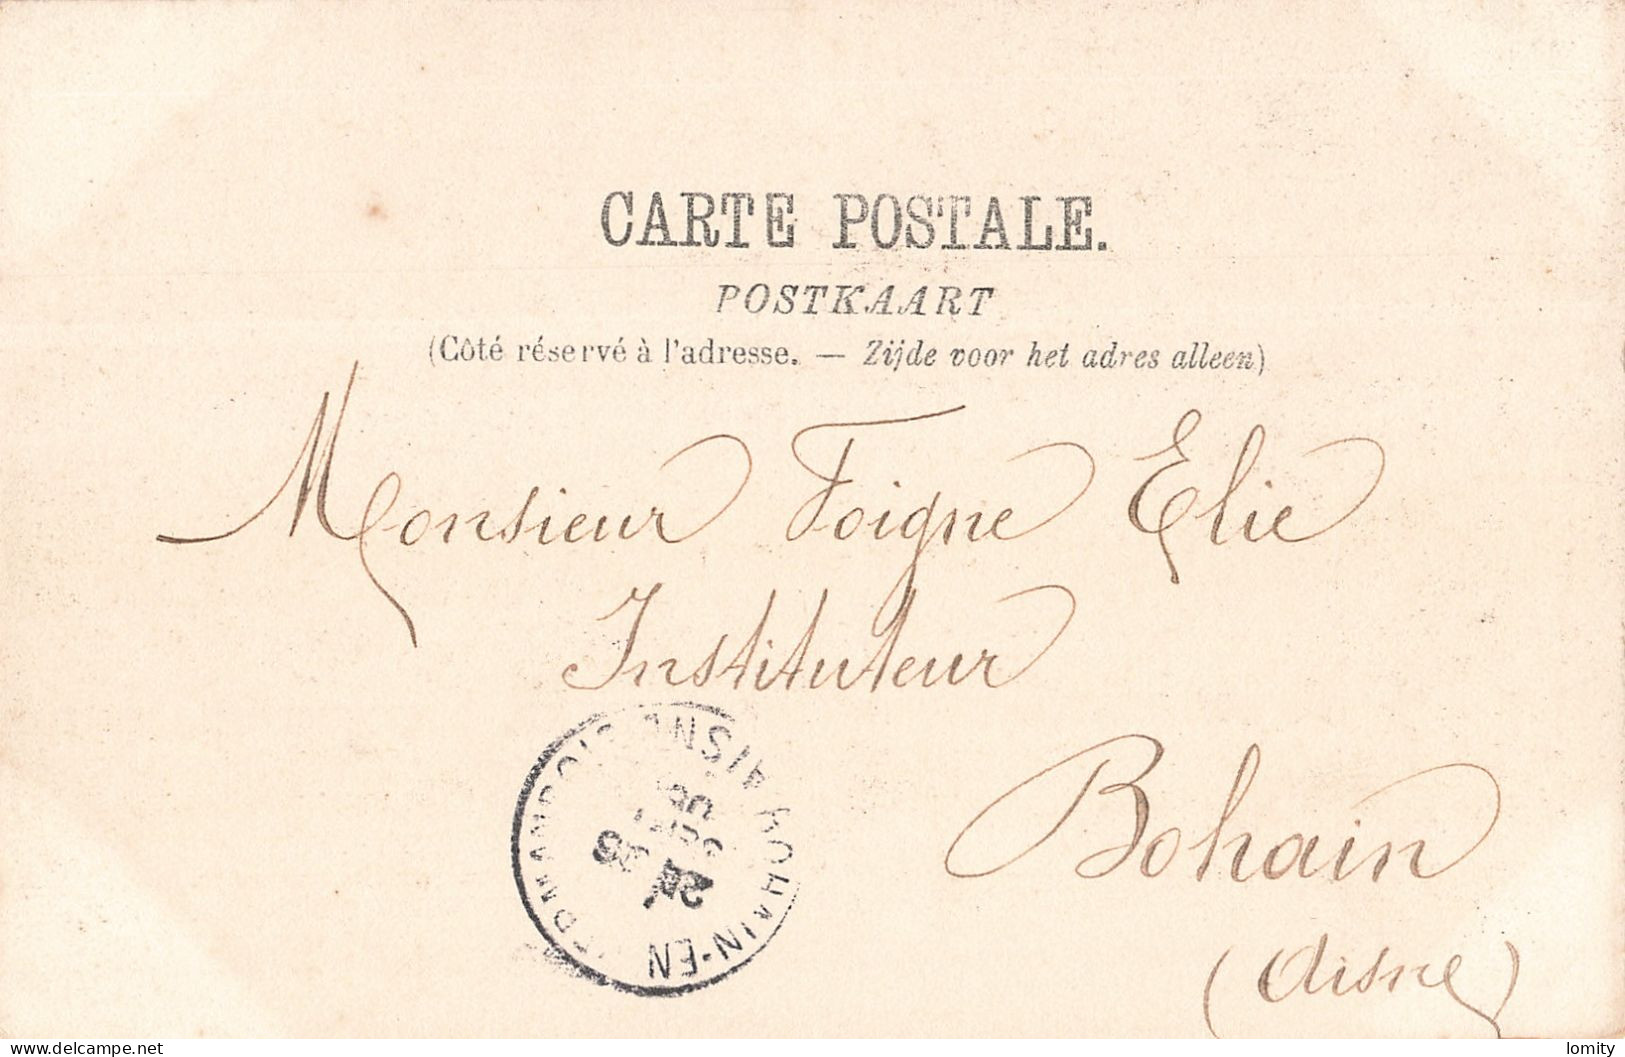 CARTE POSTALE.
POSTKAART
(Côté réservé à l'adresse. — Zijde voor het adres alleen)
Monsieur Foigne Elie
Instituteur
Bohain
(Aisne)
BOHAIN-EN
AISNE
delcampe.net
lomity